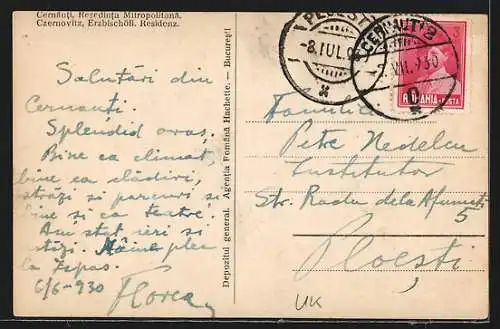 Cernăuți, Reședința Mitropolitană.
Czernovitz, Erzbischöfl. Residenz.
Salutări din
Cernăuți.
Splendid oraș.
Bine ca climat,
bine ca clădiri,
străzi și parcuri și
bine și ca teatre.
Am stat ieri și
azi. Mâine plec
la
6/6-930
Florea
Depozitul general. Agenția Română Hachette. — București
PLOESTI
-8 IUL.9
CERNAUTI 2
VII. 930
3
ROMANIA POSTA
Familiei
Petre Nedelcu
Institutor
Str. Radu dela Afumați
5
Ploești
UK